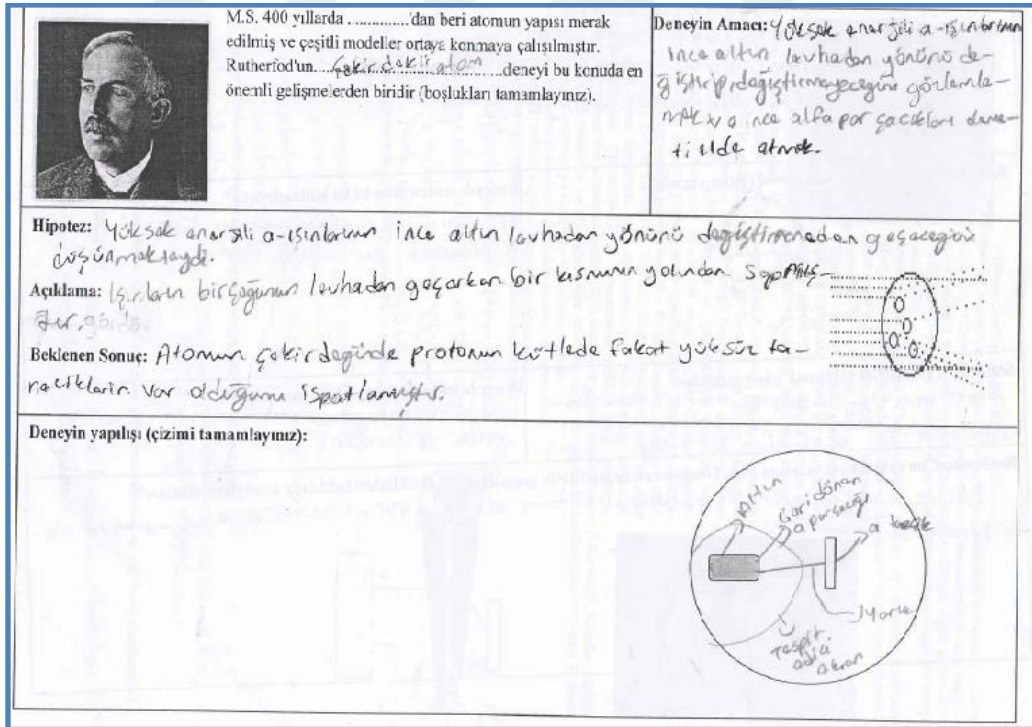 M.S. 400 yıllarda ..............'dan beri atomun yapısı merak
edilmiş ve çeşitli modeller ortaya konmaya çalışılmıştır.
Rutherfod'un....çekirdekli atom......deneyi bu konuda en
önemli gelişmelerden biridir (boşlukları tamamlayınız).
Deneyin Amacı: Yüksek enerjili a-ışınlarının
ince altın levhadan yönünü de-
ğiştirip, değiştirmeyeceğini gözlemle-
mek ve ince alfa parçacıkları deme-
ti elde etmek.
Hipotez: Yüksek enerjili a-ışınlarının ince altın levhadan yönünü değiştirmeden geçeceğini
düşünmektaydi.
Açıklama: Işınların birçoğunun levhadan geçerken bir kısmının yolundan sapmış-
tır.
Beklenen Sonuç: Atomun çekirdeğinde protonun kütlede fakat yüksüz ta-
neciklerin var olduğunu ispatlamıştır.
Deneyin yapılışı (çizimi tamamlayınız):
Altın
Geri dönen
a parçacığı
a
Yarık
Tespit
ekran